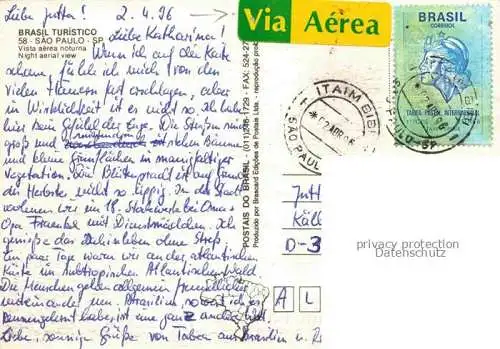 Liebe Jutta! 2.4.96
BRASIL TURÍSTICO
58 - SÃO PAULO - SP
Vista aérea noturna
Night aerial view
Liebe Katharina!
Wenn ich auf die Karte
schaue, fühle ich mich von den
vielen Häusern fast erschlagen, aber
in Wirklichkeit ist es nicht so. Ich habe
hier kein Gefühl der Enge. Die Straßen
Bäumen und
und kleine Grünflächen in mannigfaltiger
Vegetation. Die Blütenpracht ist auf Grund
des Herbstes nicht so üppig. In der Stadt
wohnen wir im 18. Stockwerk bei Oma +
Opa mit Dienstmädchen. Ich
genieße das Leben ohne Streß.
Ein paar Tage waren wir an der atlantischen
Küste im subtropischen Atlantischen Wald.
Die Menschen gehen allgemein freundlicher
miteinander um. Brasilien, soweit ich es
kennengelernt habe, ist eine ganz andere Welt.
Liebe, sonnige Grüße von Tabea aus Brasilien u.
POSTAIS DO BRASIL - (011) 246-1729 - FAX: 524-27
Produzido por Brascard Edições de Postais Ltda. - reprodução proi
Via Aérea
BRASIL
CORREIO
ITAIM BIBI
*02 ABR 96
SÃO PAUL
PAULO-SP
Jutt
Käl
D-3
A L
privacy protection
Datenschutz